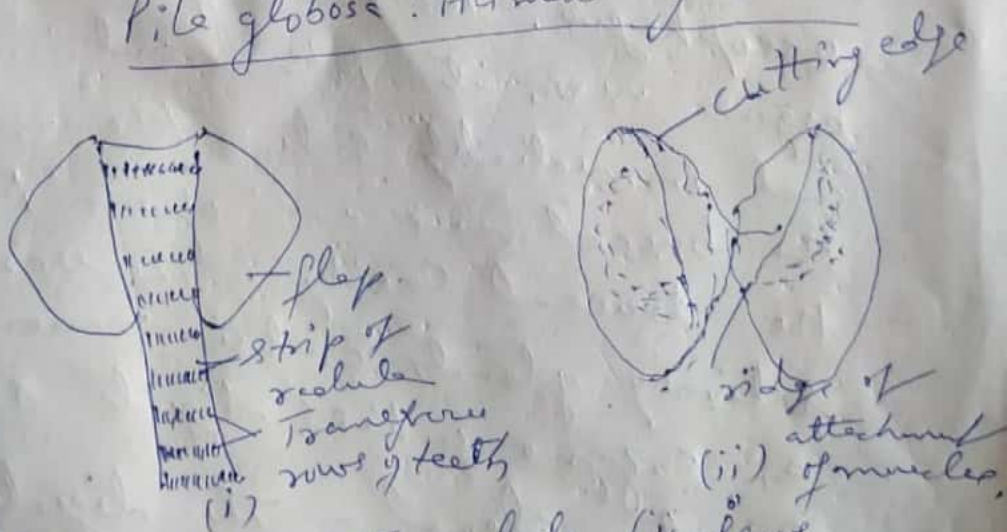 Pila globosa.
cutting edge
flap.
strip of
radula
Transverse
rows of teeth
(i)
ridge of
attachment
(ii) of muscles